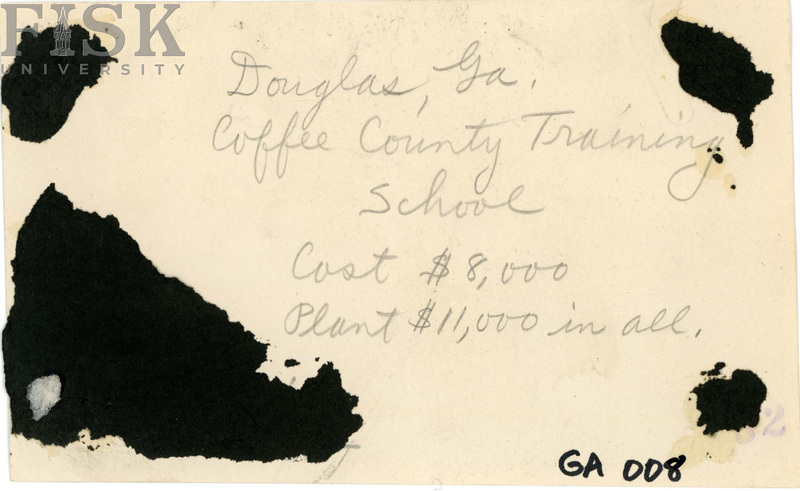 FISK
UNIVERSITY
Douglas, Ga.
Coffee County Training
School
Cost $8,000
Plant $11,000 in all.
GA 008